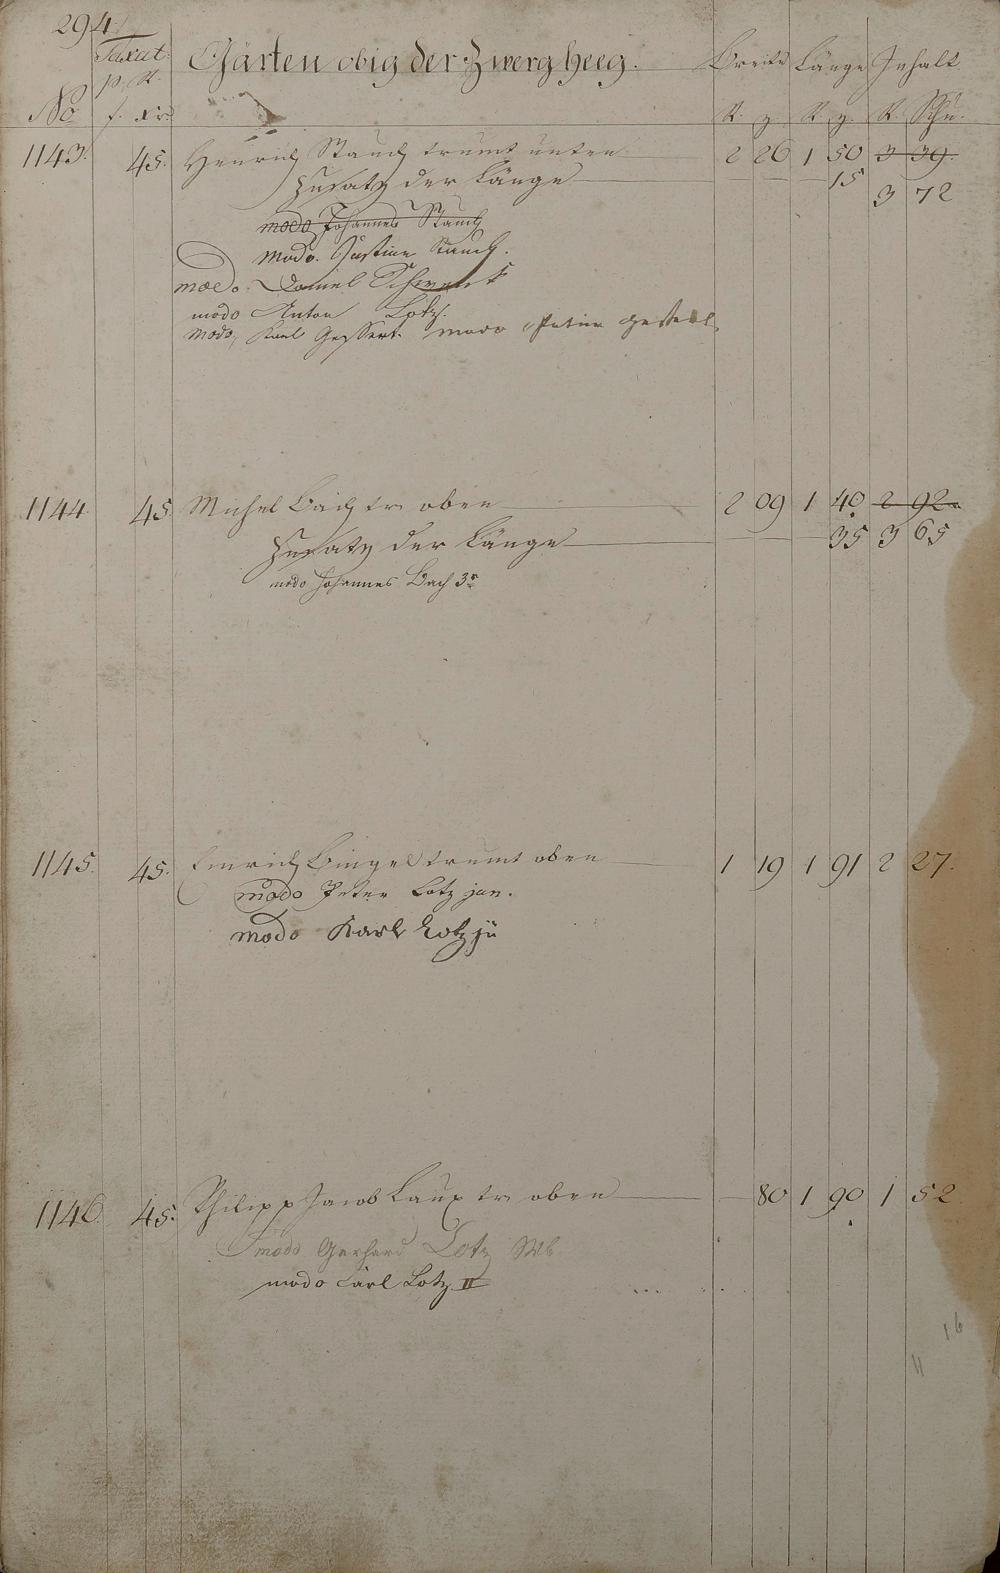 294.
Taxat: Gärten obig der Zwergheeg. Breite Länge Inhalt
p. R.
No f. xr. R. z. R. z. R. Schu.
1143. 45. Henrich Stauch trumt unten 2 26 1 50 3 39.
Zusatz der Länge 15 3 72
modo Johannes Stauch
modo. Justine Stauch.
modo. Daniel Schwenk
modo Anton Lotz.
modo, Karl Gessert. modo Peter
1144 45 Michel Bach tr. oben 2 09 1 40 2 92.
Zusatz der Länge 35 3 65
modo Johannes Bach 3r
1145. 45. Emrich Bingel trumt oben 1 19 1 91 2 27.
modo Peter Lotz jun.
modo Karl Lotz jü
1146. 45. Philipp Jacob Laux tr. oben 80 1 90 1 52
modo Gerhard Lotz
modo Carl Lotz II
16
11